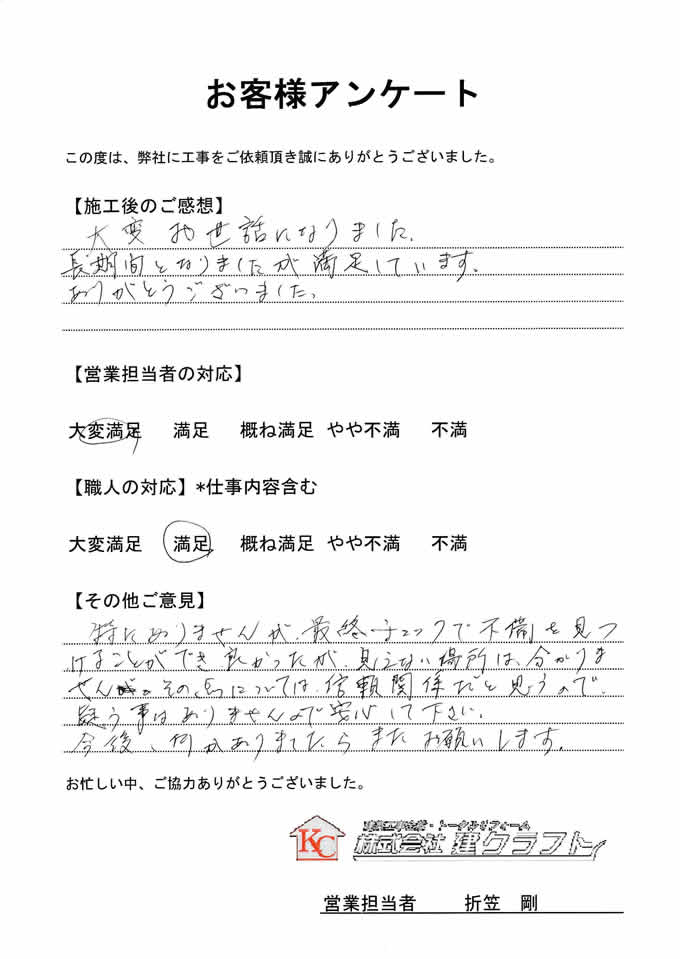 お客様アンケート
この度は、弊社に工事をご依頼頂き誠にありがとうございました。
【施工後のご感想】
大変お世話になりました。
長期間となりましたが満足しています。
ありがとうございました。
【営業担当者の対応】
大変満足 満足 概ね満足 やや不満 不満
【職人の対応】*仕事内容含む
大変満足 満足 概ね満足 やや不満 不満
【その他ご意見】
特にありませんが、最終チェックで不備を見つ
けることができ良かったが、見えない場所は、分かりま
せん。その点については、信頼関係だと思うので、
疑う事はありませんので安心して下さい。
今後、何かありましたらまたお願いします。
お忙しい中、ご協力ありがとうございました。
KC
トータルリフォーム
株式会社 建クラフト
営業担当者 折笠 剛